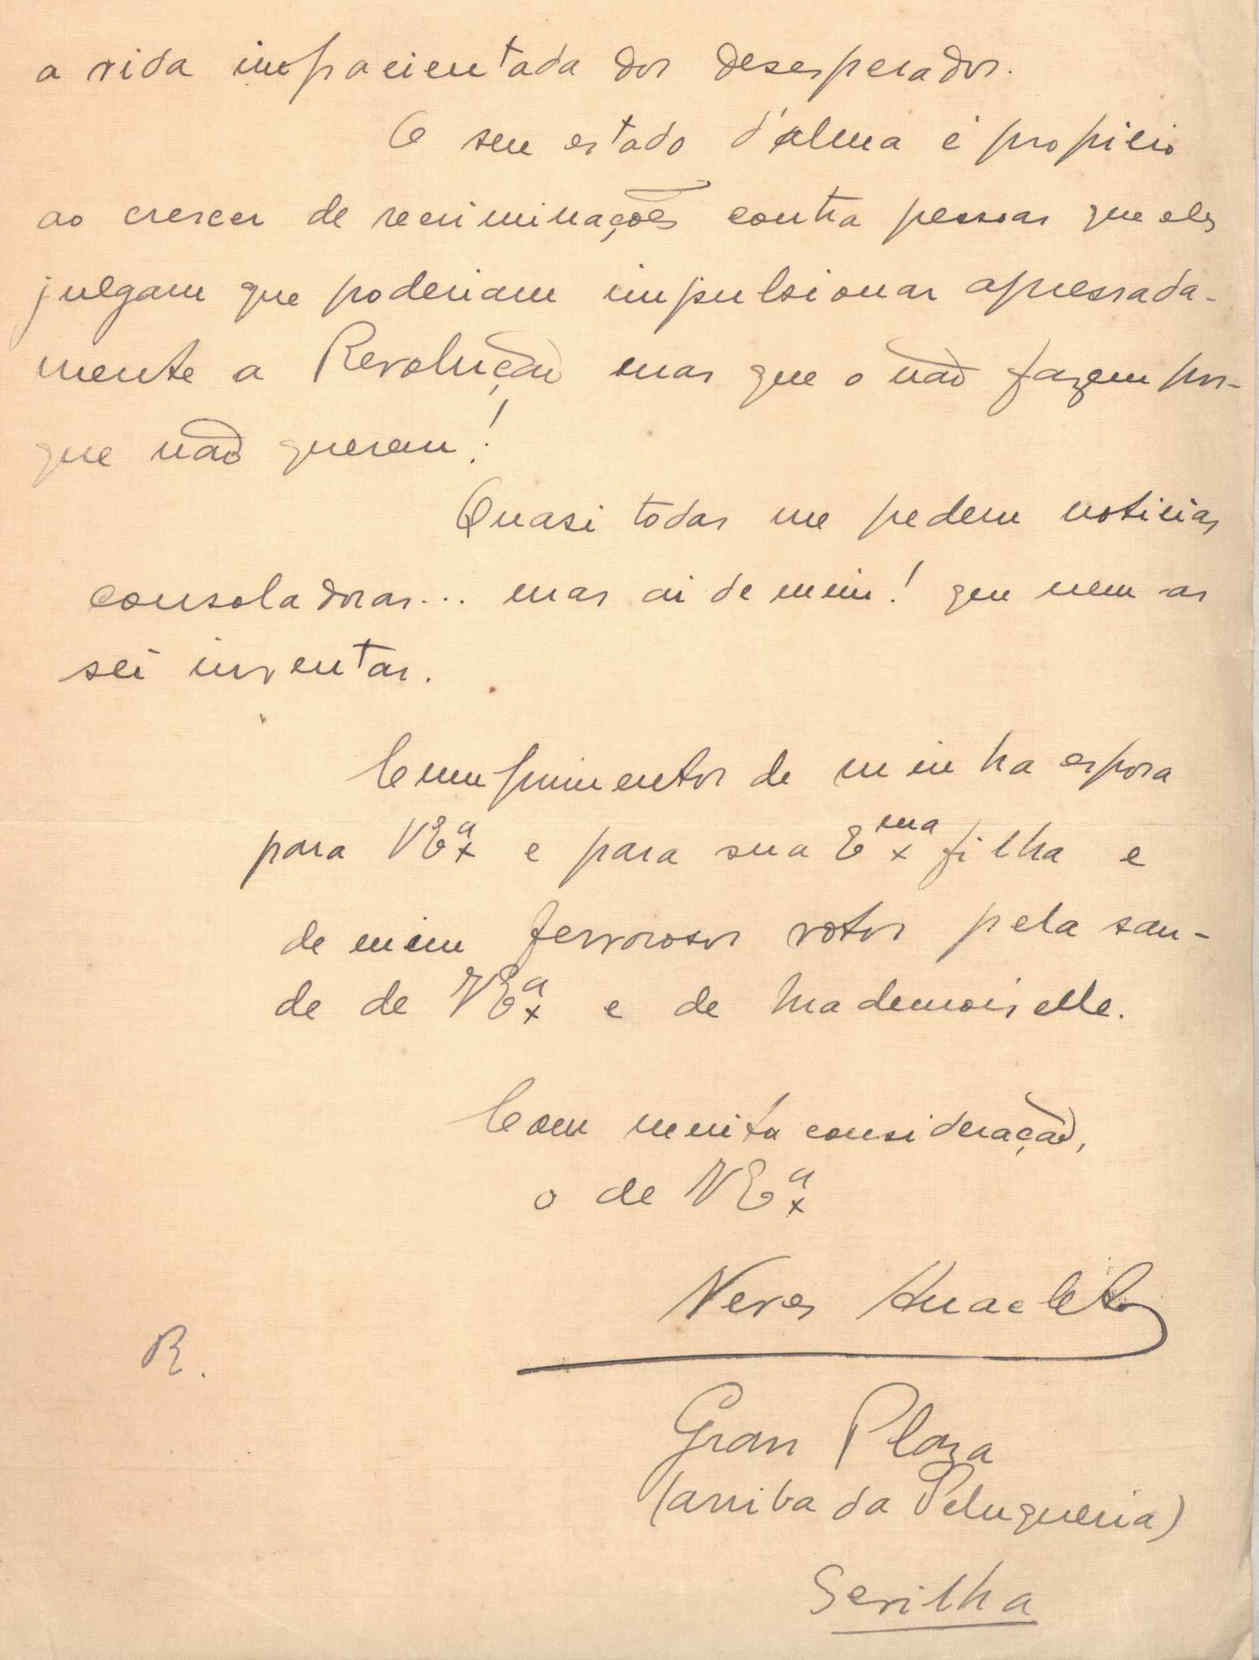 a vida impacientada dos desesperados.
O seu estado d'alma é propicio
ao crescer de recriminações contra pessoas que eles
julgam que poderiam impulsionar apressada-
mente a Revolução mas que o não fazem por-
que não querem!
Quasi todos me pedem noticias
consoladoras... mas ai de mim! que nem as
sei inventar.
Cumprimentos de minha esposa
para V Exª e para sua Exma filha e
de mim fervorosos votos pela sau-
de de V Exª e de Mademoiselle.
Com muita consideração,
o de V Exª
Neves Anacleto
R.
Gran Plaza
(arriba da Peluqueria)
Sevilha